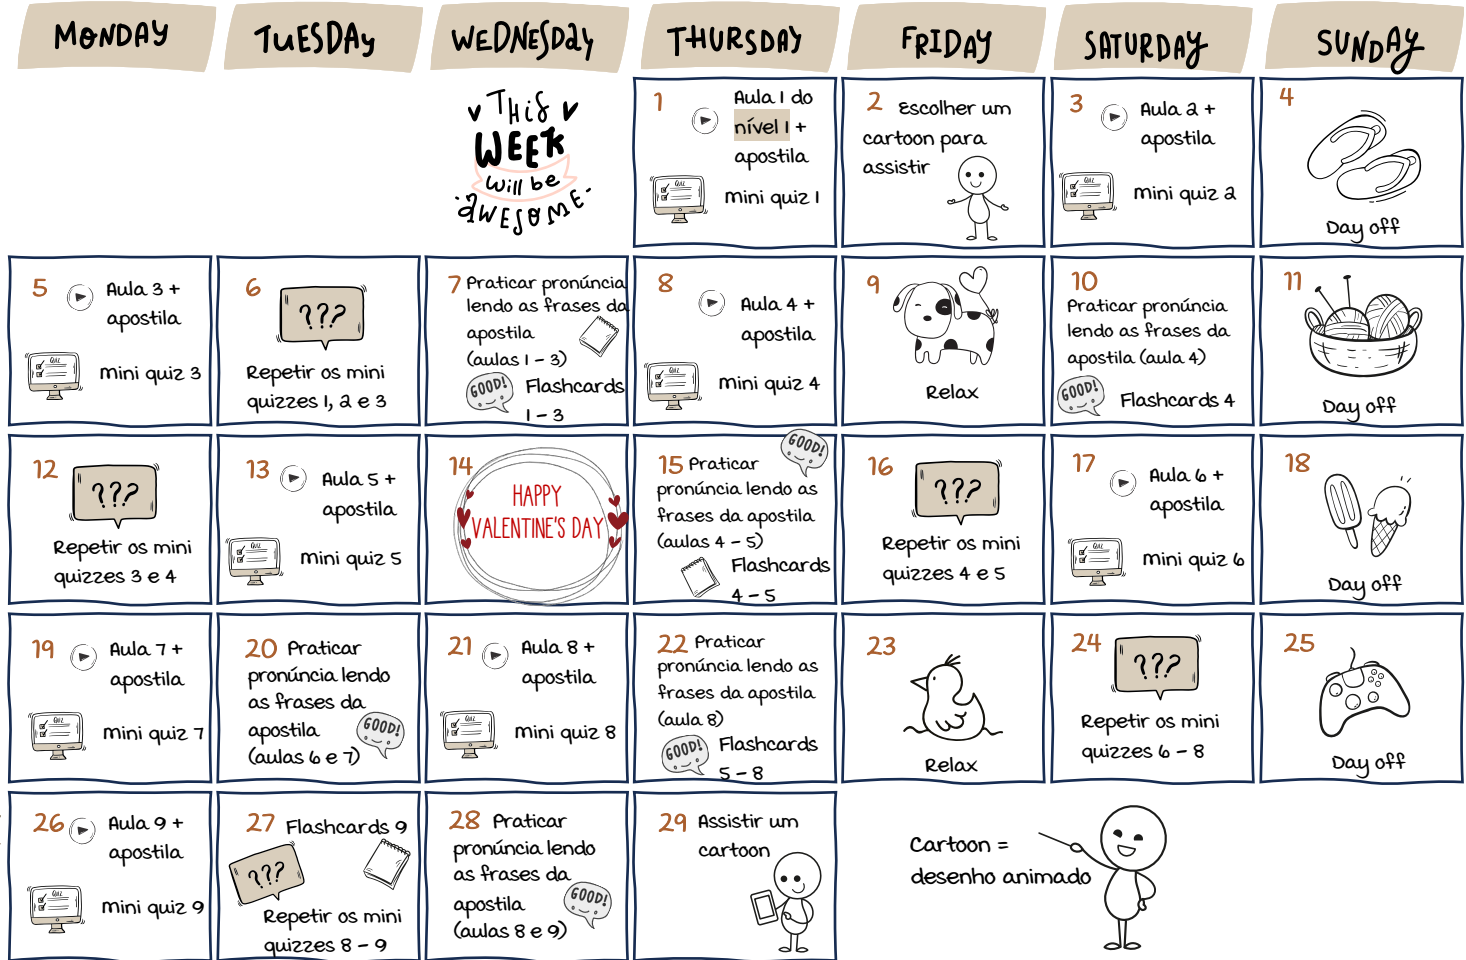 MONDAY
TUESDAY
WEDNESDAY
THURSDAY
FRIDAY
SATURDAY
SUNDAY
THIS
WEEK
will be
AWESOME
1
Aula 1 do
nível 1 +
apostila
QUIZ
mini quiz 1
2 Escolher um
cartoon para
assistir
3
Aula 2 +
apostila
QUIZ
mini quiz 2
4
Day off
5
Aula 3 +
apostila
QUIZ
mini quiz 3
6
???
Repetir os mini
quizzes 1, 2 e 3
7 Praticar pronúncia
lendo as frases da
apostila
(aulas 1 - 3)
GOOD!
Flashcards
1 - 3
8
Aula 4 +
apostila
QUIZ
mini quiz 4
9
Relax
10
Praticar pronúncia
lendo as frases da
apostila (aula 4)
GOOD!
Flashcards 4
11
Day off
12
???
Repetir os mini
quizzes 3 e 4
13
Aula 5 +
apostila
QUIZ
mini quiz 5
14
HAPPY
VALENTINE'S DAY
GOOD!
15 Praticar
pronúncia lendo as
frases da apostila
(aulas 4 - 5)
Flashcards
4 - 5
16
???
Repetir os mini
quizzes 4 e 5
17
Aula 6 +
apostila
QUIZ
mini quiz 6
18
Day off
19
Aula 7 +
apostila
QUIZ
mini quiz 7
20 Praticar
pronúncia lendo
as frases da
apostila
(aulas 6 e 7)
GOOD!
21
Aula 8 +
apostila
QUIZ
mini quiz 8
22 Praticar
pronúncia lendo as
frases da apostila
(aula 8)
GOOD!
Flashcards
5 - 8
23
Relax
24
???
Repetir os mini
quizzes 6 - 8
25
Day off
26
Aula 9 +
apostila
QUIZ
mini quiz 9
27 Flashcards 9
???
Repetir os mini
quizzes 8 - 9
28 Praticar
pronúncia lendo
as frases da
apostila
(aulas 8 e 9)
GOOD!
29 Assistir um
cartoon
Cartoon =
desenho animado